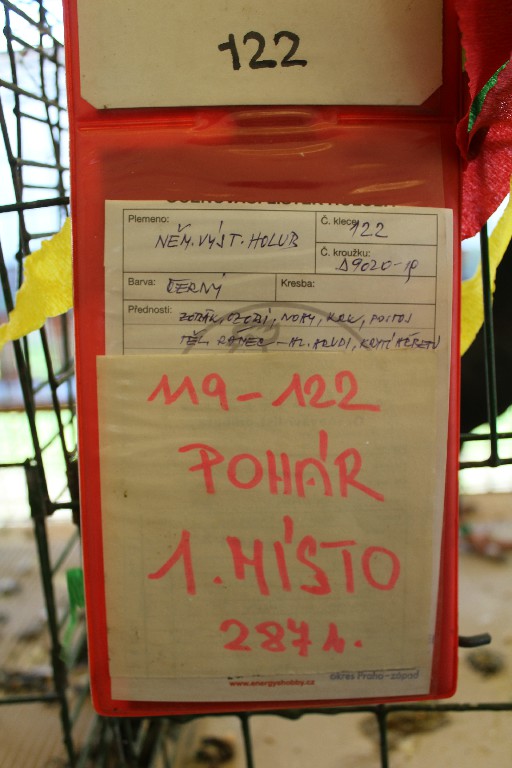 122
Plemeno: NĚM. VÝST. HOLUB
Č. klece: 122
Č. kroužku:
Barva: ČERNÝ Kresba:
Přednosti: ZOBÁK, OZOBÍ, NOHY, KRK, POSTOJ
TĚL. RÁMEC - HL. HRUDI, KRYTÍ HŘBETU
119-122
POHÁR
1. MÍSTO
287 b.
www.energyshobby.cz okres Praha-západ